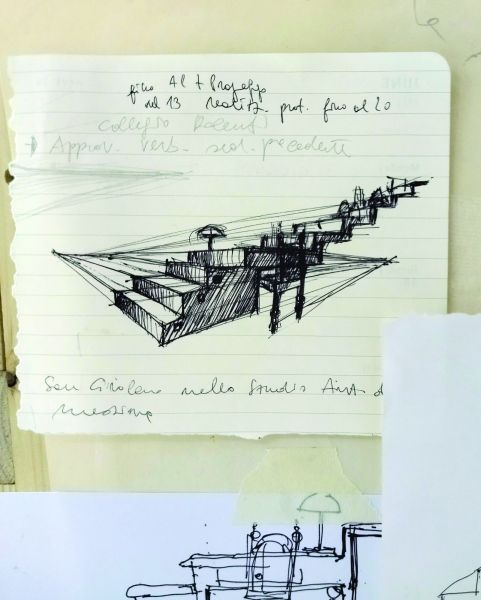 fino Al + Progetto
del 13 realizz. prot. fino al 20
Collegio
Approv. Verb. sed. precedente
San Girolamo nello Studio Ant. d
Messina